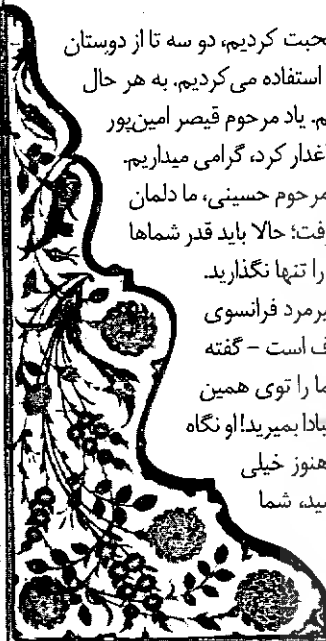 حبت کردیم، دو سه تا از دوستان
استفاده می‌کردیم، به هر حال
م. یاد مرحوم قیصر امین‌پور
غدار کرد، گرامی میداریم.
مرحوم حسینی، ما دلمان
فت؛ حالا باید قدر شماها
را تنها نگذارید.
یرمرد فرانسوی
ف است – گفته
ما را توی همین
بادا بمیرید! او نگاه
هنوز خیلی
ید، شما